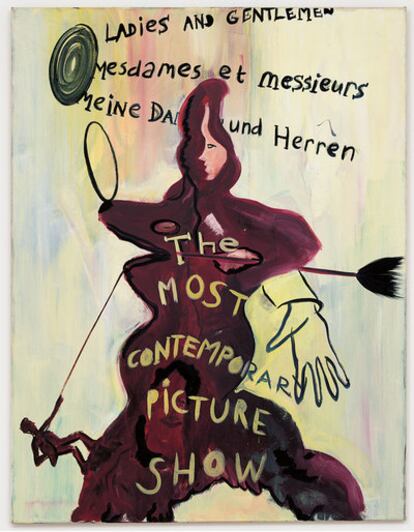 LADIES AND GENTLEMEN
Mesdames et Messieurs
Meine Da und Herren
The
MOST
CONTEMPORARY
PICTURE
SHOW